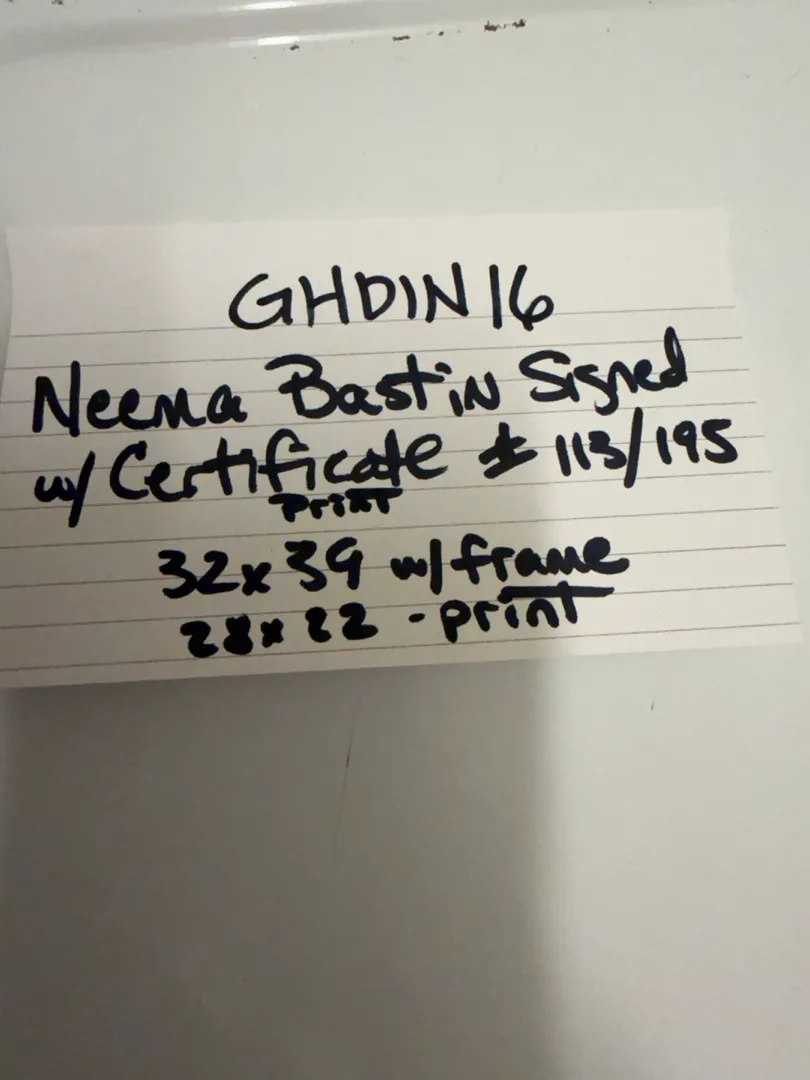 GHDIN16
Neema Bastin Signed
w/ Certificate # 113/195
print
32x39 w/ frame
28x22 - print